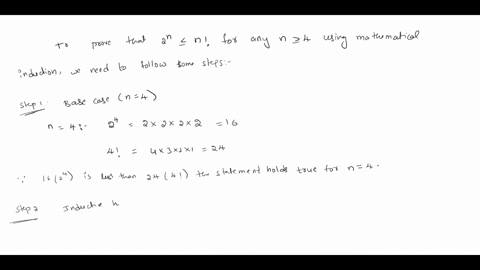 To prove that 2^n ≤ n! for any n ≥ 4 using mathematical
induction, we need to follow some steps:-
Step 1: Base case (n=4)
n = 4:- 2^4 = 2×2×2×2 = 16
4! = 4×3×2×1 = 24
∵ 16(2^4) is less than 24(4!) the statement holds true for n=4.
Step 2 Inductive h